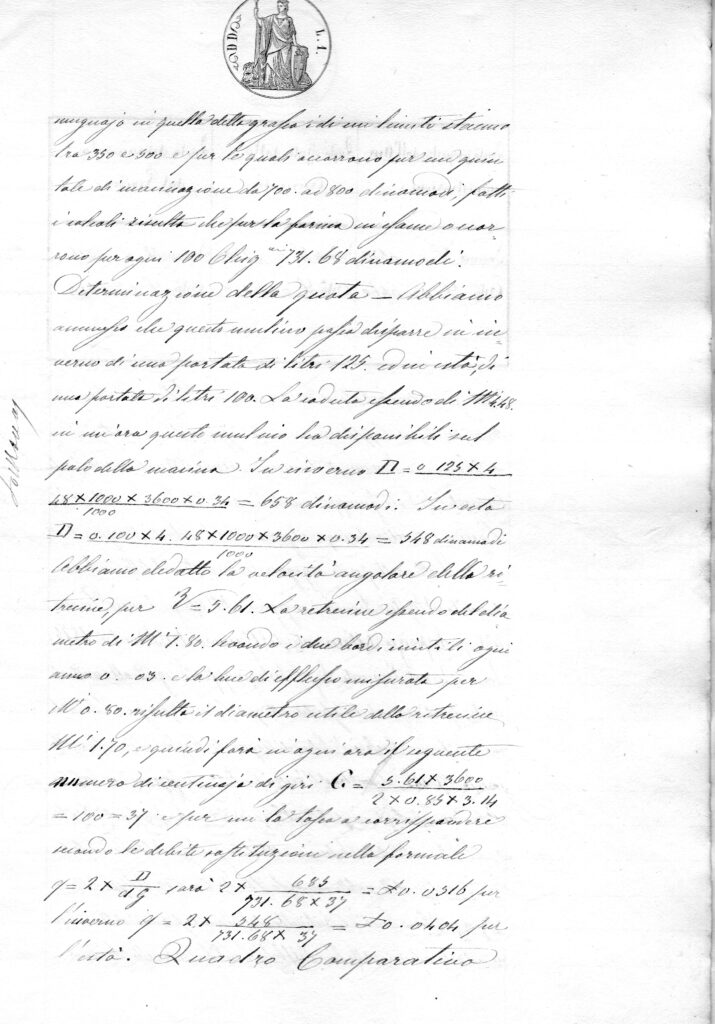 DD
L. 1.
mugnajo in quella della grassa i di cui limiti stanno
tra 350 e 500 e per le quali occorrono per un quin-
tale di macinazione da 700. ad 800 dinamodi, fatti
i calcoli risulta che per la farina in esame occor-
rono per ogni 100 Chig.mi 731.68 dinamodi.
Determinazione della quota — Abbiamo
ammesso che questo mulino possa disporre in in-
verno di una portata di litri 125. ed in està, di
una portata di litri 100. La caduta essendo di M.i 4.48.
in un'ora questo mulino ha disponibili sul
palo della macina. In inverno D = 0.125 × 4
48 × 1000 × 3600 × 0.34 / 1000 = 658 dinamodi. In està
D = 0.100 × 4.48 × 1000 × 3600 × 0.34 / 1000 = 548 dinamodi
Abbiamo dedotto la velocità angolare della ri-
trecine, per V = 5.61. La retrecine essendo del dia
metro di M.i 1.80. avendo i due bordi uniti ogni
anno 0.03. e la luce di efflusso misurata per
M.i 0.80. risulta il diametro utile della ritrecine
M.i 1.70, e quindi farà in ogni ora il seguente
numero di centinaja di giri C = 5.61 × 3600 / 2 × 0.85 × 3.14
= 100 = 37 e per cui la tassa a corrispondere
secondo le debite sostituzioni nella formale
q = 2 × D / dg sarà 2 × 685 / 731.68 × 37 = £ 0.0516 per
l'inverno q = 2 × 548 / 731.68 × 37 = £ 0.0404 per
l'està. Quadro Comparativo